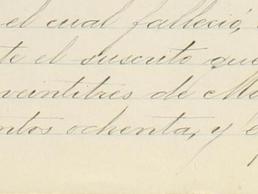 el cual falleció,
te el suscrito que
veintitres de M
ntos ochenta, y e